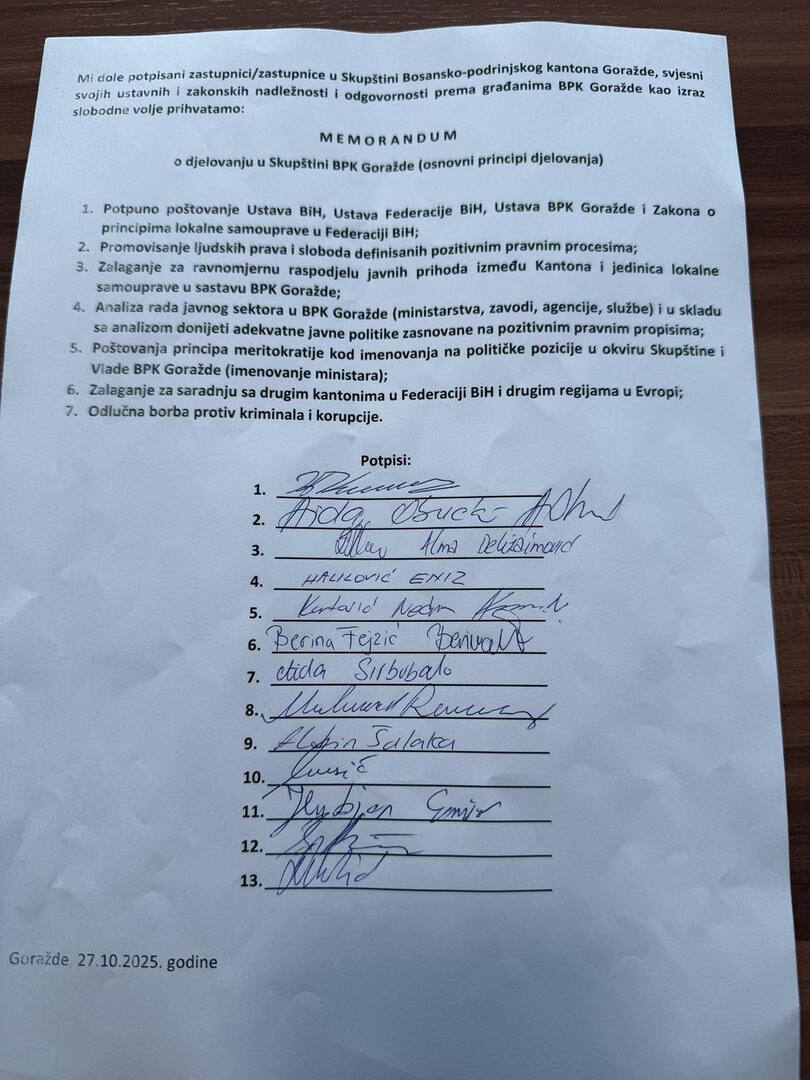 Mi dole potpisani zastupnici/zastupnice u Skupštini Bosansko-podrinjskog kantona Goražde, svjesni
svojih ustavnih i zakonskih nadležnosti i odgovornosti prema građanima BPK Goražde kao izraz
slobodne volje prihvatamo:
MEMORANDUM
o djelovanju u Skupštini BPK Goražde (osnovni principi djelovanja)
1. Potpuno poštovanje Ustava BiH, Ustava Federacije BiH, Ustava BPK Goražde i Zakona o
principima lokalne samouprave u Federaciji BiH;
2. Promovisanje ljudskih prava i sloboda definisanih pozitivnim pravnim procesima;
3. Zalaganje za ravnomjernu raspodjelu javnih prihoda između Kantona i jedinica lokalne
samouprave u sastavu BPK Goražde;
4. Analiza rada javnog sektora u BPK Goražde (ministarstva, zavodi, agencije, službe) i u skladu
sa analizom donijeti adekvatne javne politike zasnovane na pozitivnim pravnim propisima;
5. Poštovanja principa meritokratije kod imenovanja na političke pozicije u okviru Skupštine i
Vlade BPK Goražde (imenovanje ministara);
6. Zalaganje za saradnju sa drugim kantonima u Federaciji BiH i drugim regijama u Evropi;
7. Odlučna borba protiv kriminala i korupcije.
Potpisi:
1.
2. Aida
3. Alma
4. HALILOVIĆ ENIZ
5.
6. Berina Fejzić
7. Aida Sirbubalo
8.
9. Šalaka
10.
11.
12.
13.
Goražde, 27.10.2025. godine